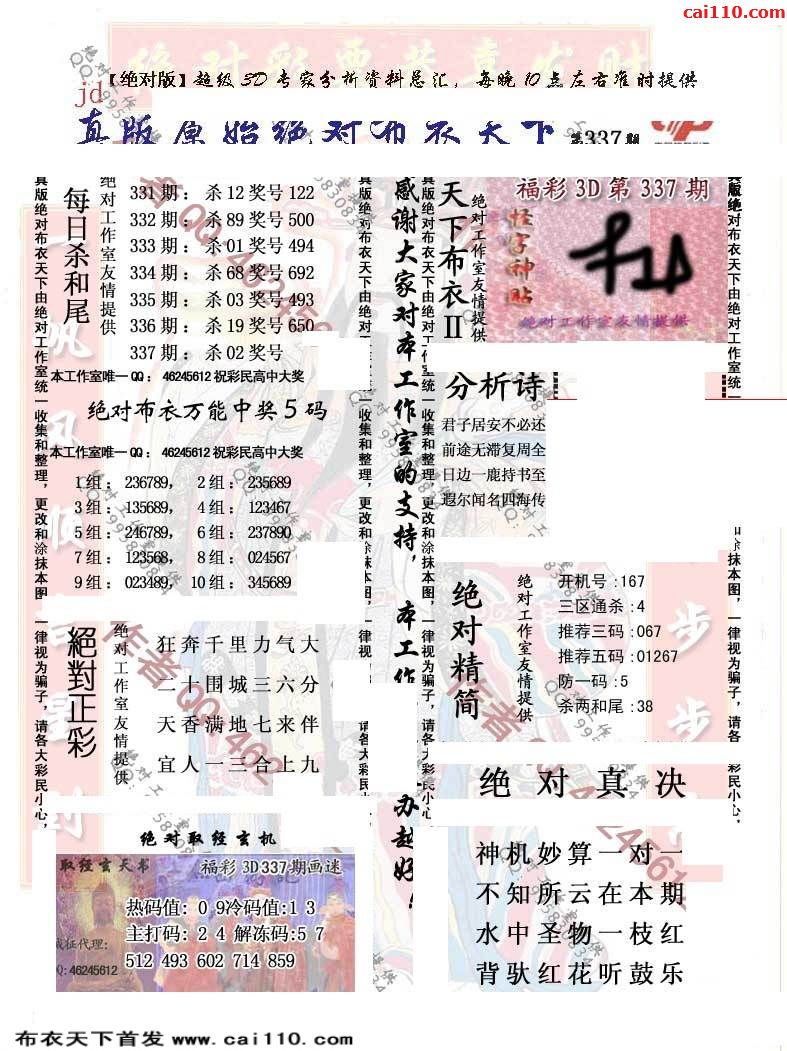 cai110.com
【绝对版】超级3D专家分析资料总汇,每晚10点左右准时提供
jd
真版原始绝对布衣天下 第337期
真版绝对布衣天下由绝对工作室统一收集和整理,更改和涂抹本图,一律视为骗子,请各大彩民小心,
每日杀和尾
绝对工作室友情提供
331期:杀12奖号122
332期:杀89奖号500
333期:杀01奖号494
334期:杀68奖号692
335期:杀03奖号493
336期:杀19奖号650
337期:杀02奖号
本工作室唯一QQ:46245612祝彩民高中大奖
绝对布衣万能中奖5码
本工作室唯一QQ:46245612祝彩民高中大奖
1组:236789, 2组:235689
3组:135689, 4组:123467
5组:246789, 6组:237890
7组:123568, 8组:024567
9组:023489, 10组:345689
絕對正彩
绝对工作室友情提供
狂奔千里力气大
二十围城三六分
天香满地七来伴
宜人一三合上九
绝对取经玄机
取经玄天书
福彩3D337期画谜
热码值:0 9冷码值:1 3
主打码:2 4 解冻码:5 7
512 493 602 714 859
诚征代理:
QQ:46245612
真版绝对布衣天下由绝对工作室统一收集和整理,更改和涂抹本图
感谢大家对本工作室的支持,本工作
办越好
真版绝对布衣天下由绝对工作室统一收集和整理,更改和涂抹本图,一律视为骗子,请各大彩民小心,
天下布衣II
绝对工作室友情提供
福彩3D第337期
怪字神贴
绝对工作室友情提供
分析诗
君子居安不必还
前途无滞复周全
日边一鹿持书至
遐尔闻名四海传
绝对精简
绝对工作室友情提供
开机号:167
三区通杀:4
推荐三码:067
推荐五码:01267
防一码:5
杀两和尾:38
绝对真决
神机妙算一对一
不知所云在本期
水中圣物一枝红
背驮红花听鼓乐
真版绝对布衣天下由绝对工作室统一
和涂抹本图,一律视为骗子,请各大彩民小心,
布衣天下首发 www.cai110.com